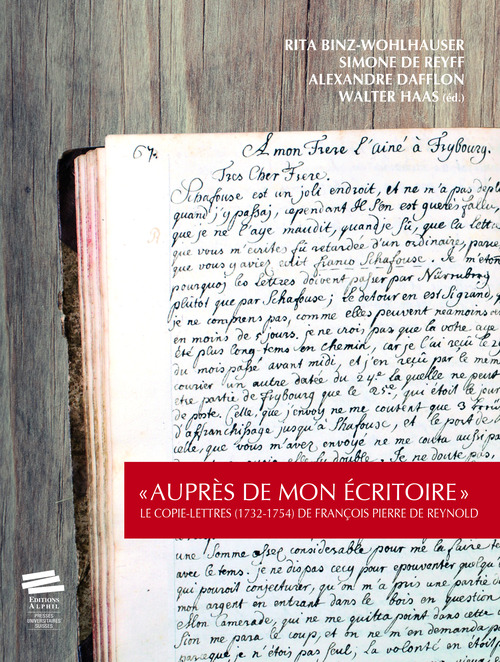 RITA BINZ-WOHLHAUSER
SIMONE DE REYFF
ALEXANDRE DAFFLON
WALTER HAAS (éd.)
67.
A mon Frere l'ainé à Frybourg.
Tres Cher Frere.
Schafouse est un joli endroit, et ne m'a pas dépl
quand j'y passaj, cependant Il s'en est guerés fallu,
que je ne l'aye maudit, quand je sû, que la lettr
que vous m'ecrites fû retardée d'un ordinaire, parce
que vous y aviez ecrit franco Schafouse. Je m'éton
pourquoj les lettres doivent passer par Nürnberg
plûtot que par Schafouse; le detour en est si grand,
je ne comprens pas, comme elles peuvent neamoins
en moins de 5 jours. je ne crois pas que la votre aye
été plus long-tems en chemin, car je l'ai reçû le 2
du mois passé avant midi, et j'en reçû par le mem
courier un autre datée du 24.e laquelle ne peut
etre partie de Frybourg que le 25.e, qui étoit le jour
de poste. Celle, que j'envoy ne me coutent que 3
d'affranchissage jusqu'à Shafouse, et le port de
celle, que vous m'avez envoyé ne me couta aussi pa
elle du double. Je ne doute pas,
« AUPRÈS DE MON ÉCRITOIRE »
LE COPIE-LETTRES (1732-1754) DE FRANÇOIS PIERRE DE REYNOLD
une somme assez considerable pour me la faire te
avec le tems. je ne dis pas cecy pour epouventer quelqu'
qui pouroit conjecturer, qu'on m'a pris une partie
mon argent en entrant dans le bois en question
Mon camerade, qui ne me quitta point dans cette
sion me para le coup, et on ne m'en demanda p
parceque je n'étois pas seul; la volonté en étoit
EDITIONS
ALPHIL
PRESSES
UNIVERSITAIRES
SUISSES